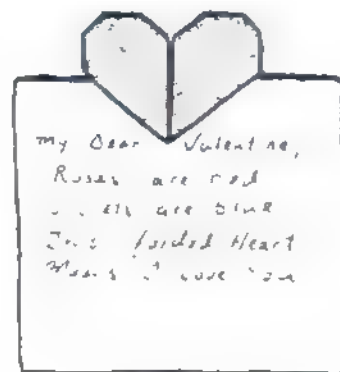 My Dear Valentine,
Roses are red
are blue
Folded Heart
Means I Love You